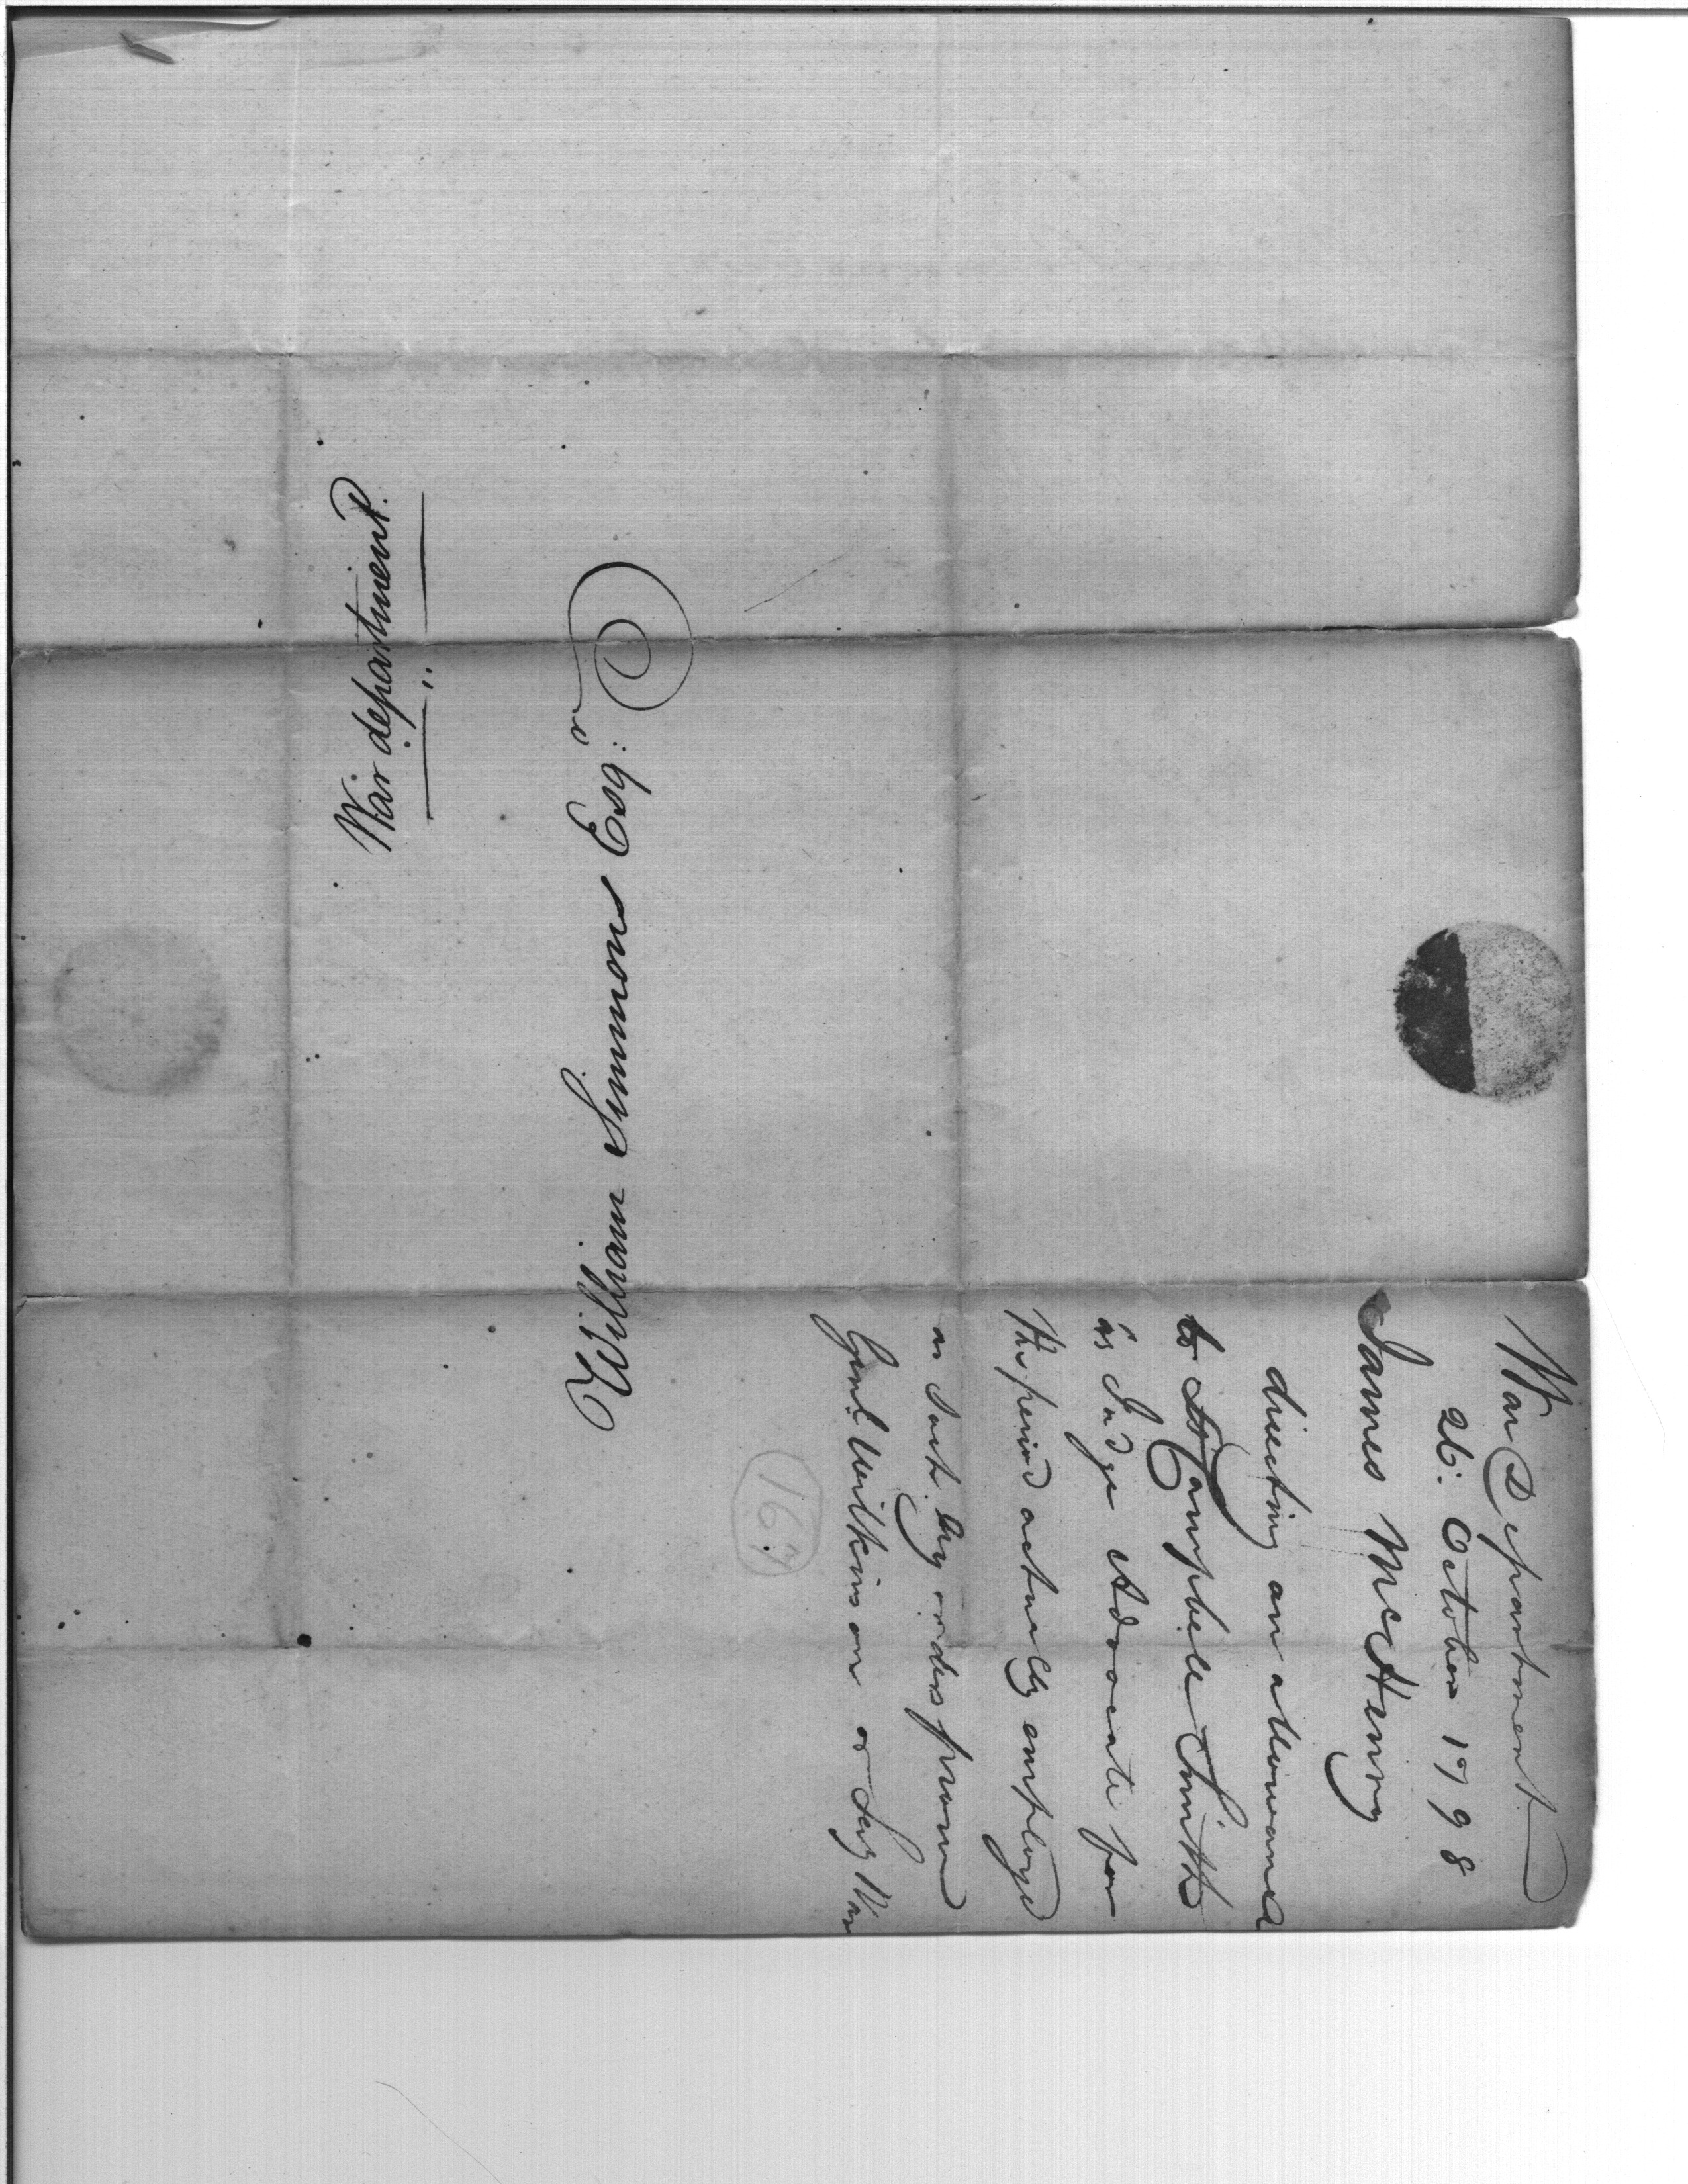 War department
William Simmons Esqr.
War Department
26. October 1798
James McHenry
directing an allowance
to Campbell Smith
as Judge Advocate for
the period actually employed
as such by orders from
Genl. Wilkinson or Secy War
167